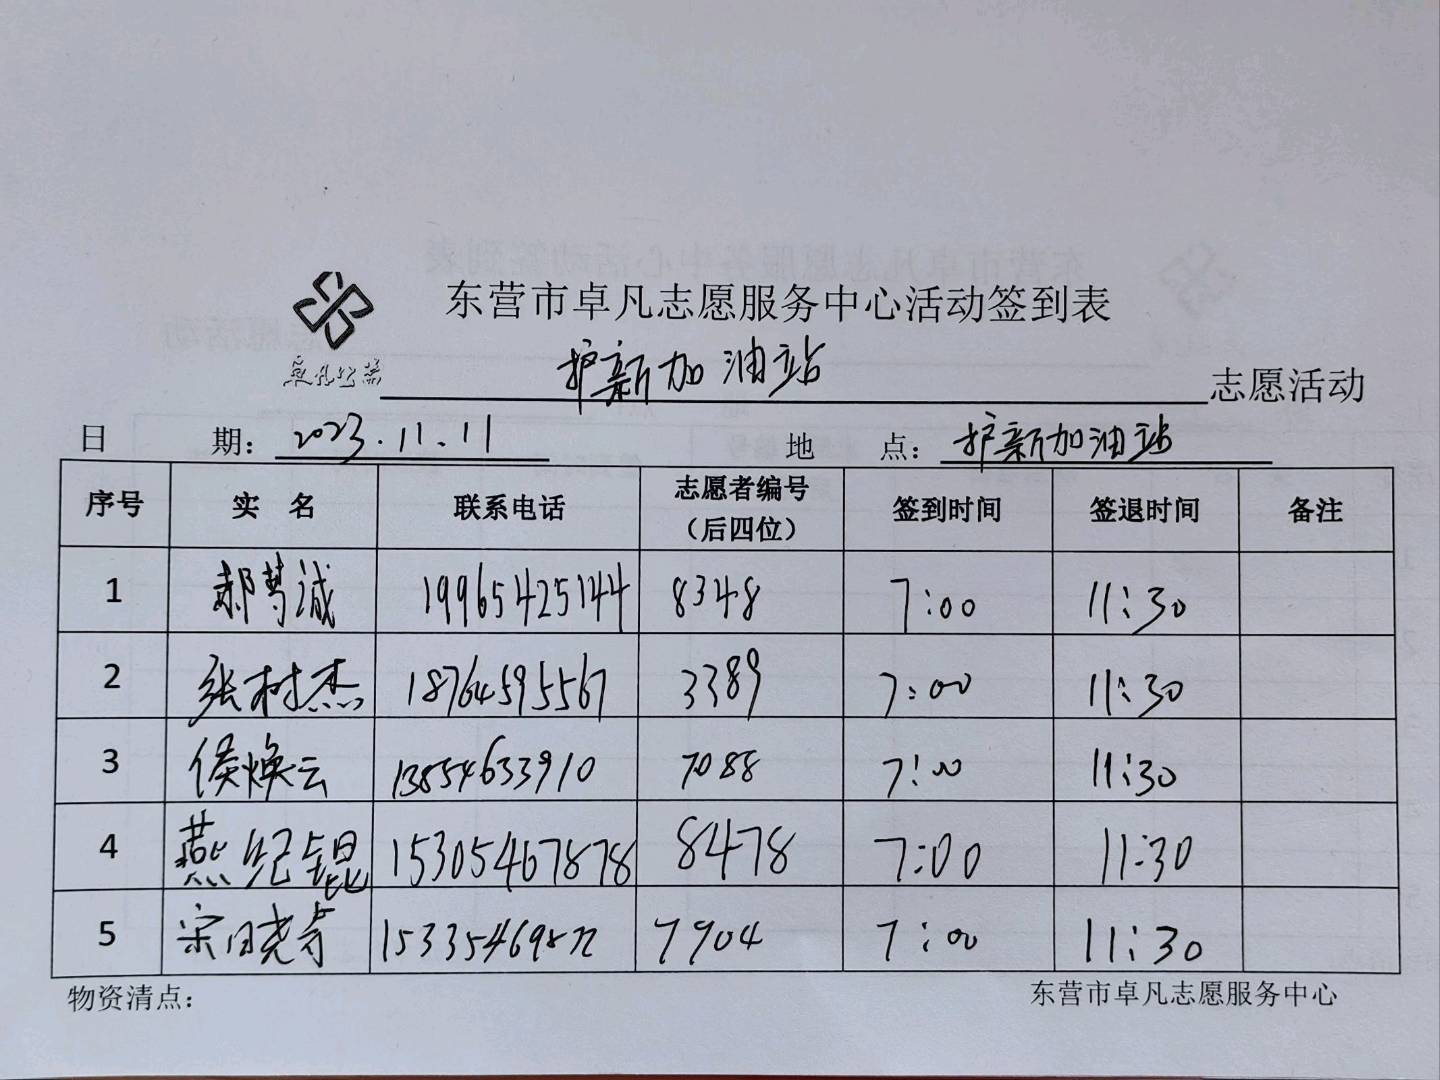 东营市卓凡志愿服务中心活动签到表
卓凡公益
护新加油站 志愿活动
日 期: 2023.11.11 地 点: 护新加油站
序号 实 名 联系电话 志愿者编号（后四位） 签到时间 签退时间 备注
1 郝梦诚 19965425144 8348 7:00 11:30
2 张树杰 18764595567 3389 7:00 11:30
3 侯焕云 13854633910 7088 7:00 11:30
4 燕纪锟 15305467878 8478 7:00 11:30
5 宋晓奇 7904 7:00 11:30
物资清点: 东营市卓凡志愿服务中心